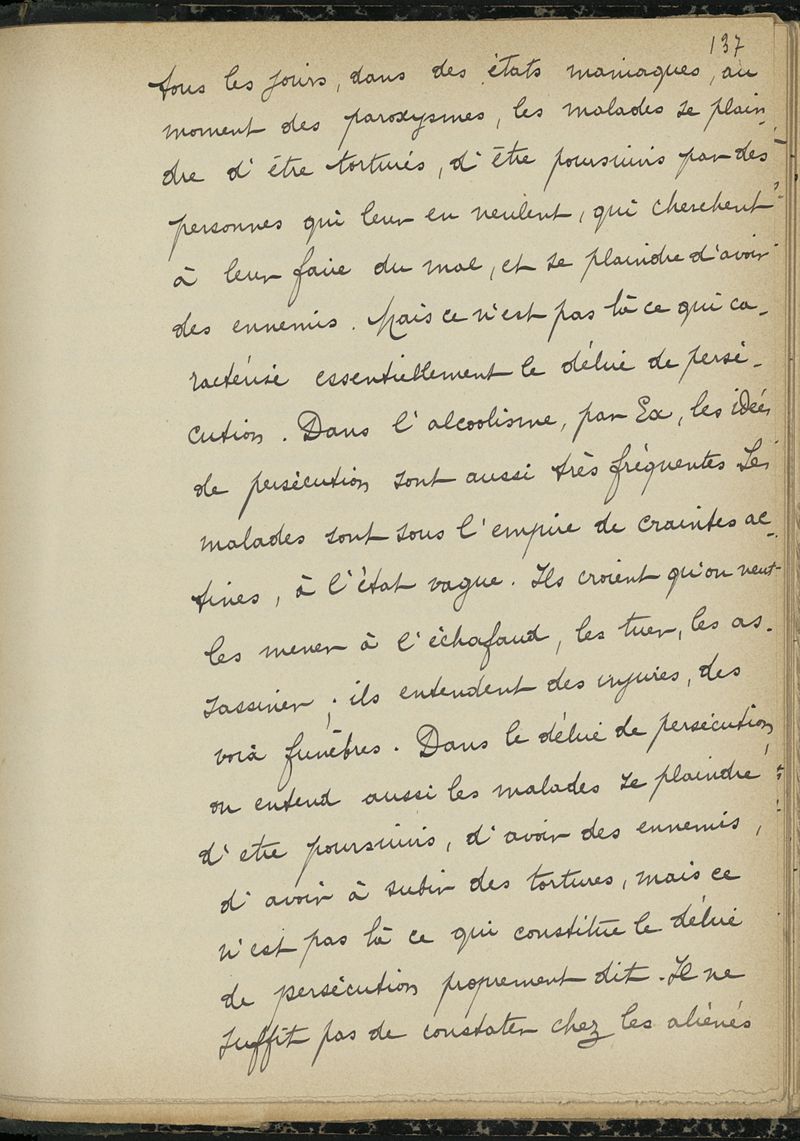 137
tous les jours, dans des états maniaques, au
moment des paroxysmes, les malades se plain-
dre d'être torturés, d'être poursuivis par des
personnes qui leur en veulent, qui cherchent
à leur faire du mal, et se plaindre d'avoir
des ennemis. Mais ce n'est pas là ce qui ca-
ractérise essentiellement le délire de persé-
cution. Dans l'alcoolisme, par Ex, les idées
de persécution sont aussi très fréquentes. Les
malades sont sous l'empire de craintes ac-
tives, à l'état vague. Ils croient qu'on veut
les mener à l'échafaud, les tuer, les as-
sassiner ; ils entendent des injures, des
voix funèbres. Dans le délire de persécution,
on entend aussi les malades se plaindre
d'etre poursuivis, d'avoir des ennemis,
d'avoir à subir des tortures, mais ce
n'est pas là ce qui constitue le délire
de persécution proprement dit. Il ne
suffit pas de constater chez les aliénés